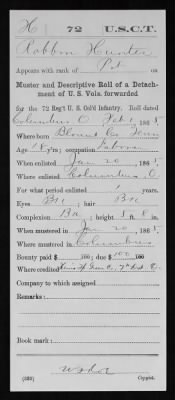 H 72 U.S.C.T.
Robbon Hunter
Appears with rank of Pvt on
Muster and Descriptive Roll of a Detach-
ment of U. S. Vols. forwarded
for the 72 Reg't U. S. Col'd Infantry. Roll dated
Columbus O Feb 1, 1865.
Where born Blount Co Tenn
Age 18 y'rs; occupation Laborer
When enlisted Jan 20, 1865.
Where enlisted Columbus, O.
For what period enlisted 1 years.
Eyes Blk; hair Blk
Complexion Blk; height 5 ft. 8 in.
When mustered in Jan 20, 1865.
Where mustered in Columbus
Bounty paid $ 100; due $ 100
Where credited
Company to which assigned
Remarks:
Book mark:
(339) Copyist.